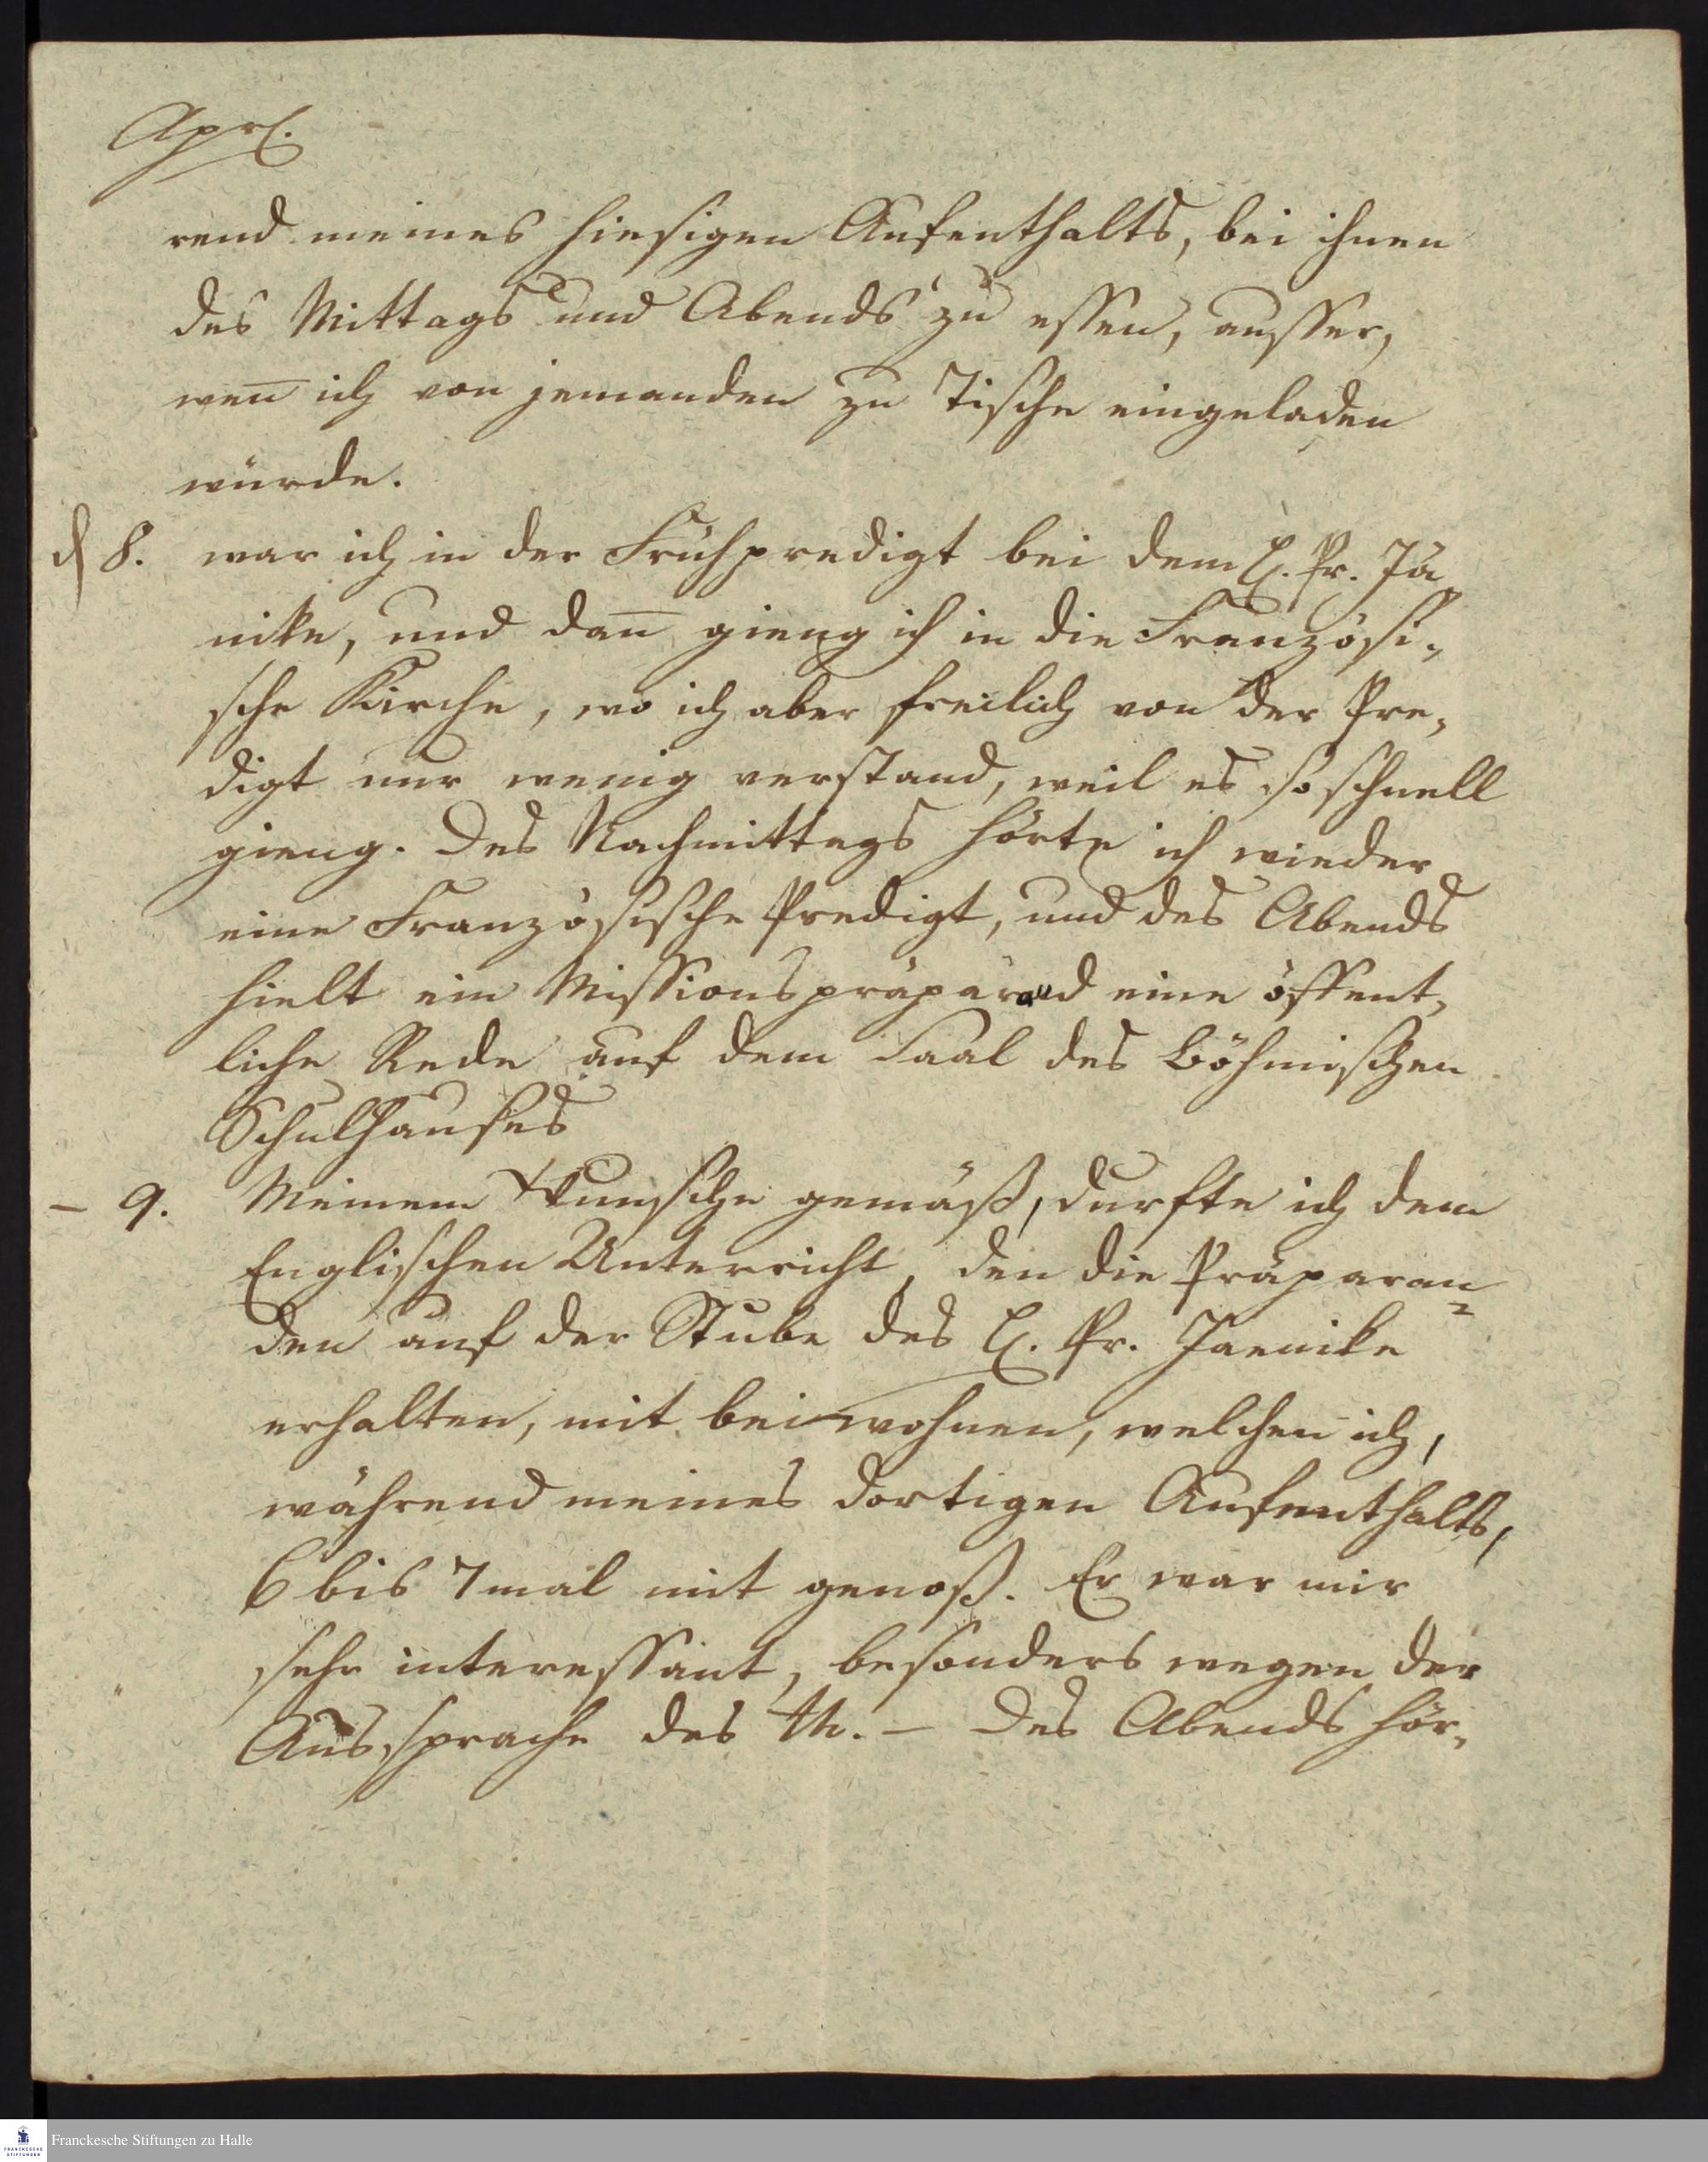 Aprl.
rend meines hiesigen Aufenthalts, bei ihnen
des Mittags und Abends zu essen, ausser,
wen̅ ich von jemanden zu Tische eingeladen
würde.
d 8. war ich in der Frühpredigt bei dem H. Pr. Jä-
nike, und dan̅ gieng ich in die Französi-
sche Kirche, wo ich aber freilich von der Pre-
digt nur wenig verstand, weil es so schnell
gieng. Des Nachmittags hörte ich wieder
eine Französische Predigt, und des Abends
hielt ein Missionspräparand eine öffent-
liche Rede auf dem Saal des Böhmischen
Schulhauses
– 9. Meinem Wunsche gemäß, durfte ich dem
Englischen Unterricht, den die Präparan=
den auf der Stube des H. Pr. Jaenike
erhalten, mit beiwohnen, welchen ich,
während meines dortigen Aufenthalts,
6 bis 7mal mit genoß. Er war mir
sehr interessant, besonders wegen der
Aussprache des th. – Des Abends hör-
FRANCKESCHE STIFTUNGEN
Franckesche Stiftungen zu Halle